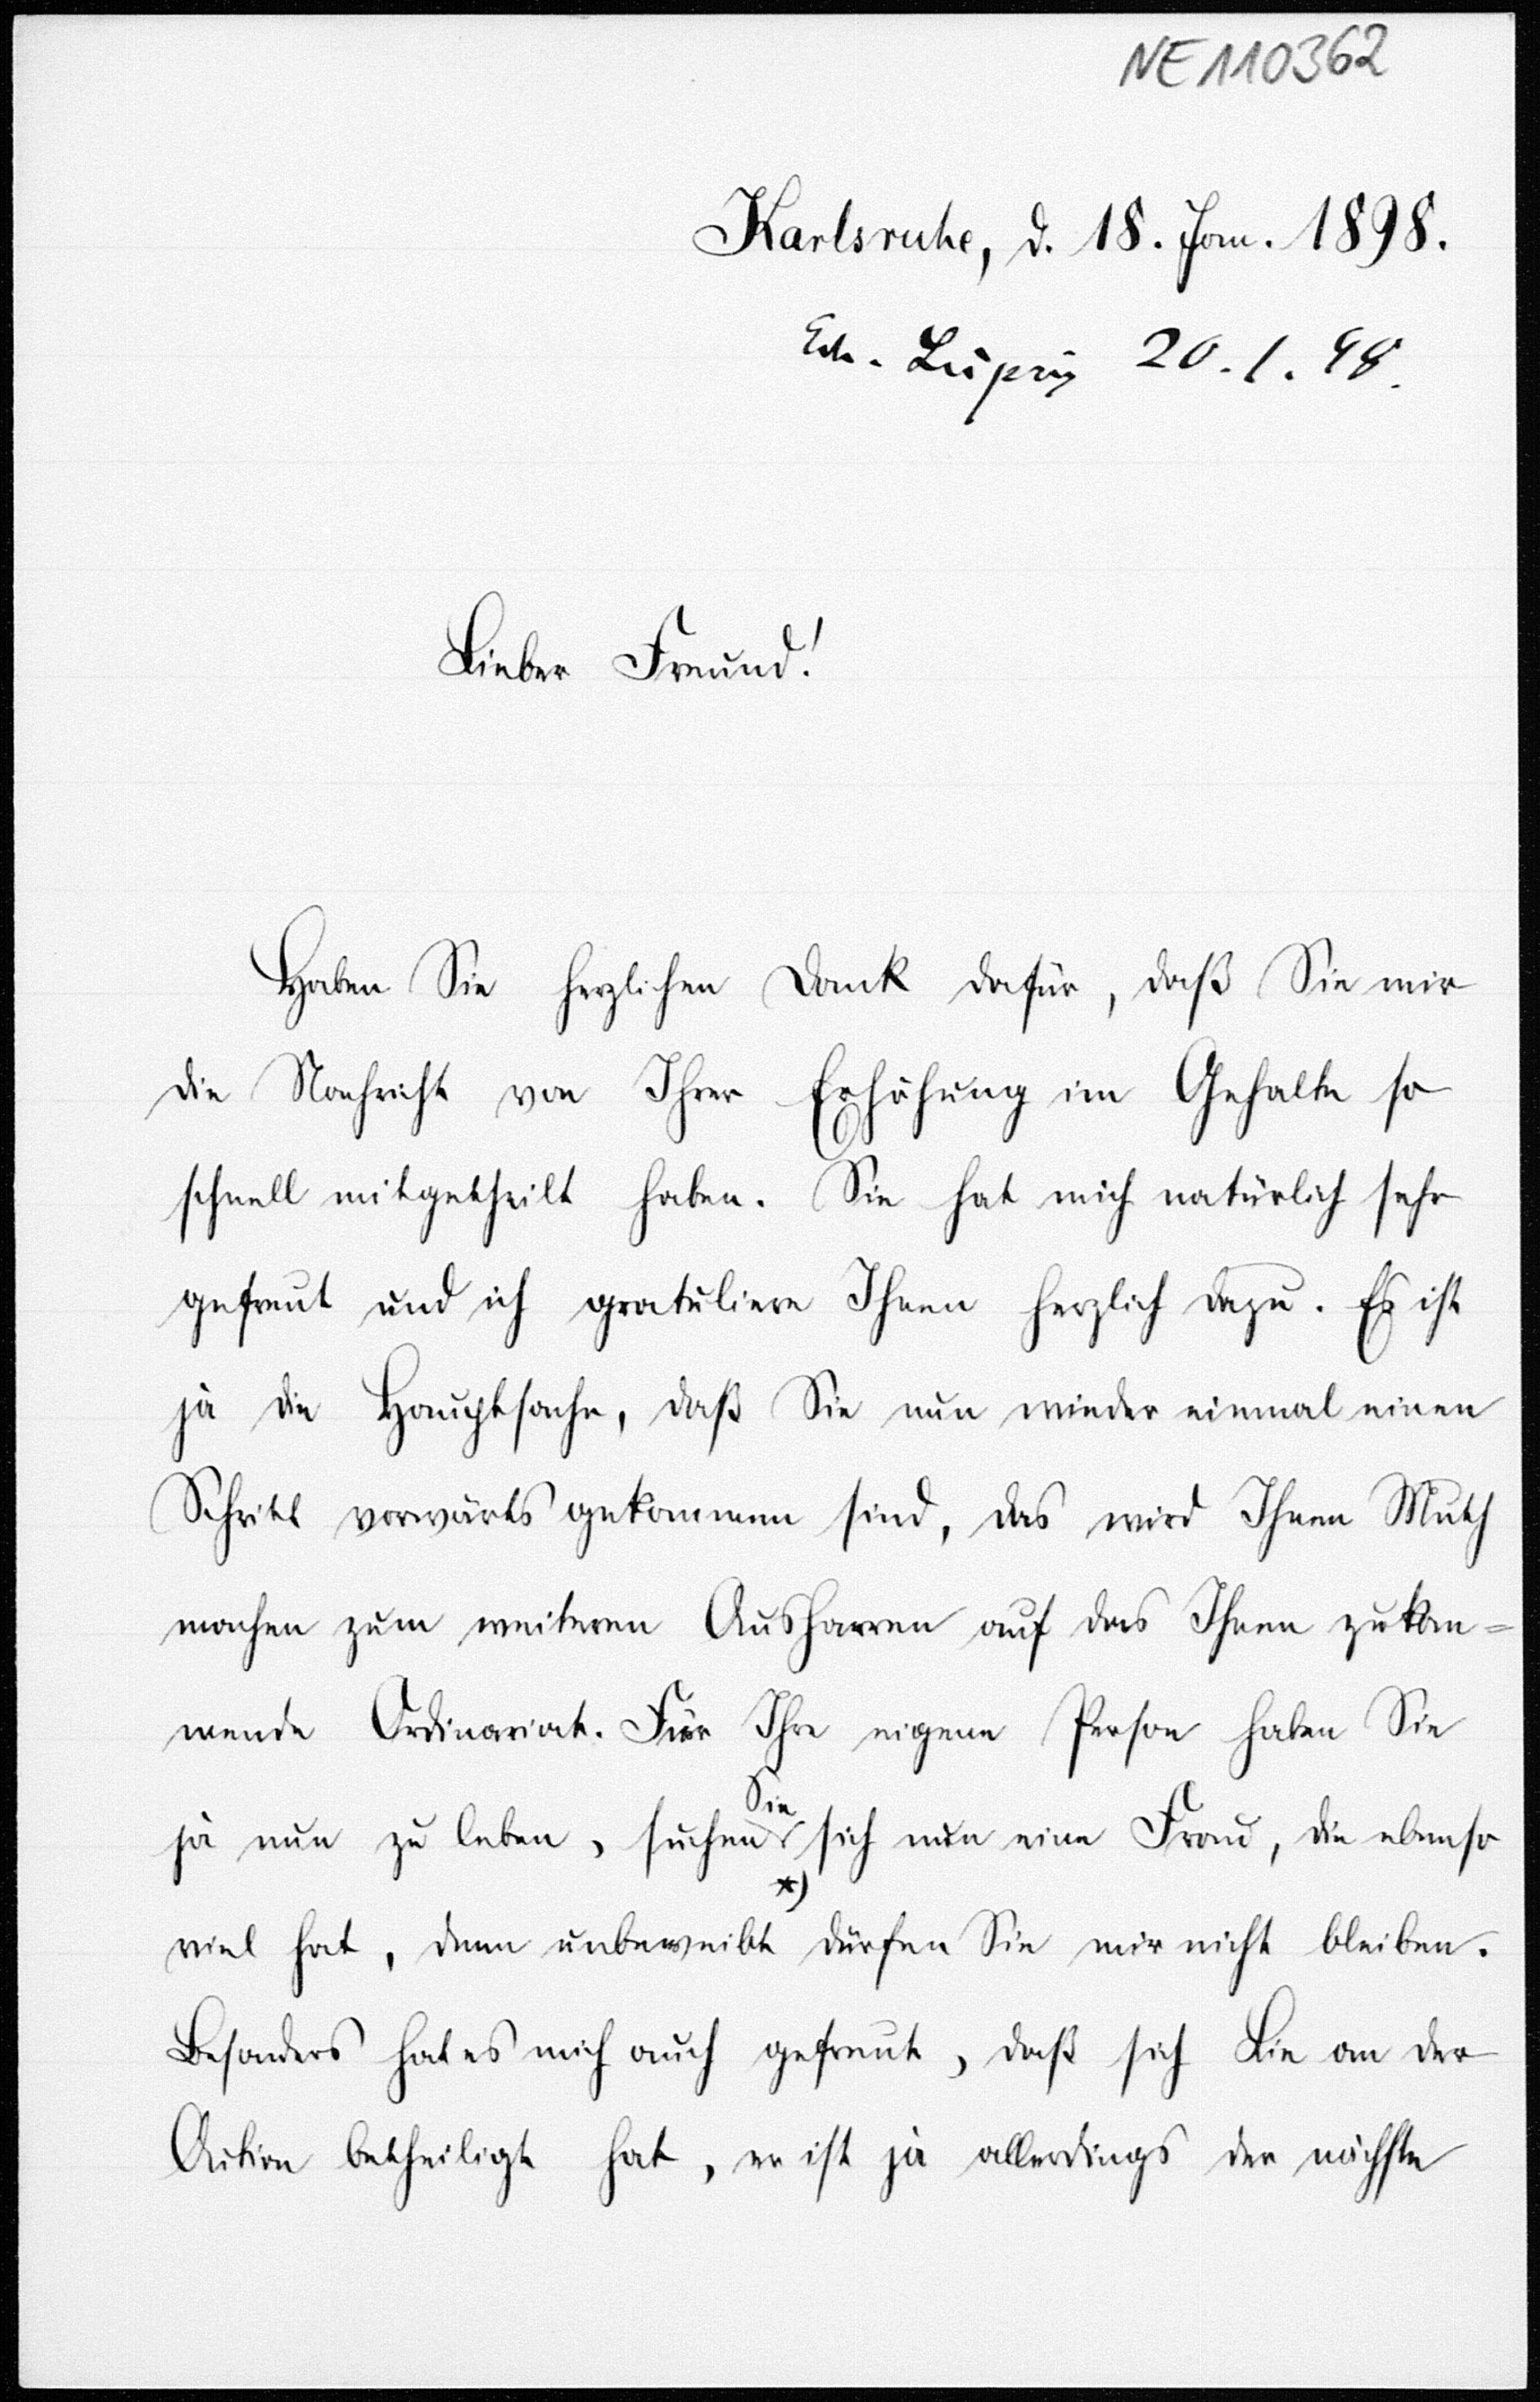 NE110362
Karlsruhe, d. 18. Jan. 1898.
Erh. Leipzig 20.1.98.
Lieber Freund!
Haben Sie herzlichen Dank dafür, daß Sie mir
die Nachricht von Ihrer Erhöhung im Gehalte so
schnell mitgetheilt haben. Sie hat mich natürlich sehr
gefreut und ich gratuliere Ihnen herzlich dazu. Es ist
ja die Hauptsache, daß Sie nun wieder einmal einen
Schritt vorwärts gekommen sind, das wird Ihnen Muth
machen zum weiteren Ausharren auf das Ihnen zukom=
mende Ordinariat. Für Ihre eigene Person haben Sie
ja nun zu leben, suchen Sie sich nun eine Frau, die ebenso
viel hat, denn unbeweibt *) dürfen Sie mir nicht bleiben.
Besonders hat es mich auch gefreut, daß sich Lie an der
Aktion betheiligt hat, er ist ja allerdings der nächste